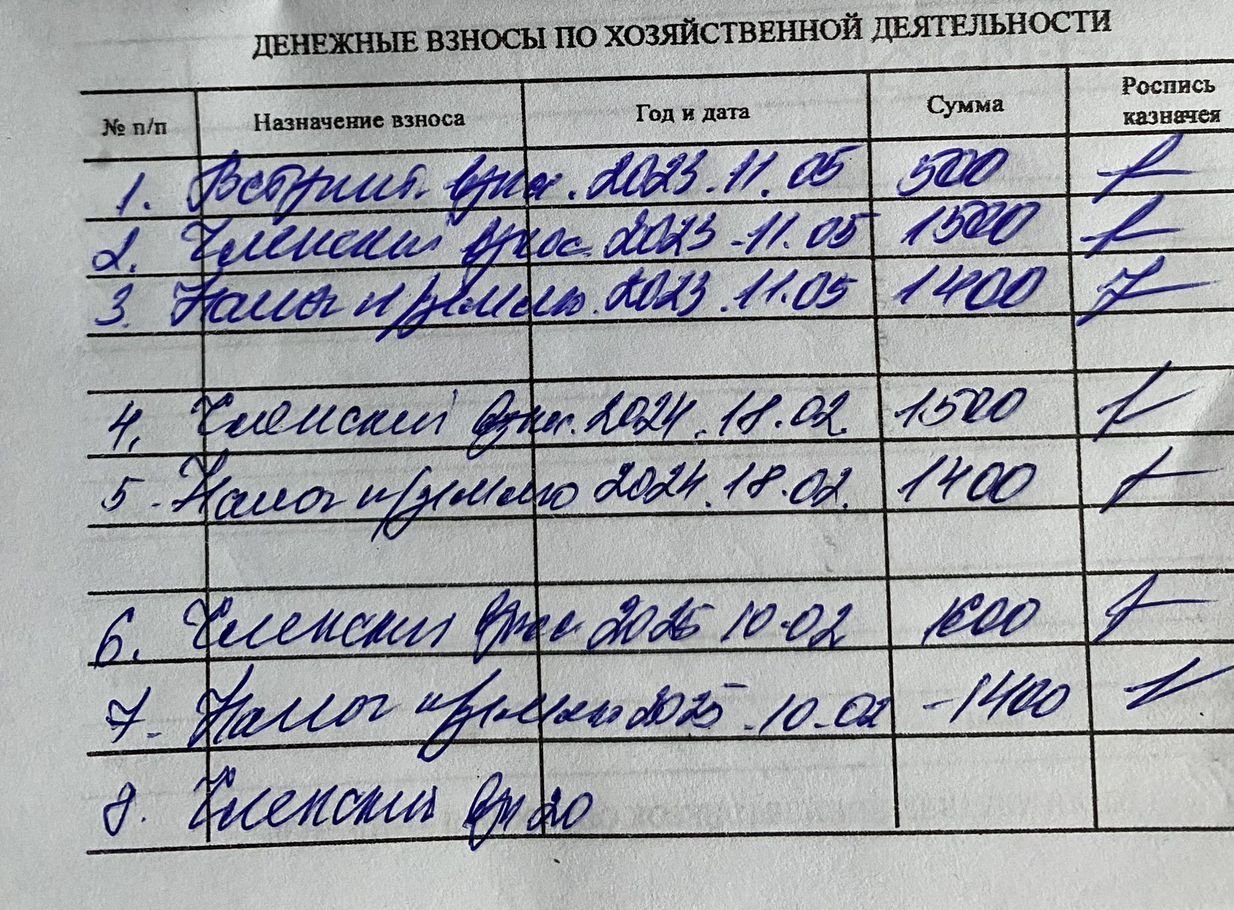 ДЕНЕЖНЫЕ ВЗНОСЫ ПО ХОЗЯЙСТВЕННОЙ ДЕЯТЕЛЬНОСТИ
№ п/п Назначение взноса Год и дата Сумма Роспись казначея
1. Вступит. взнос. 2023.11.05 500
2. Членский взнос 2023-11.05 1500
3. Налог н/землю. 2023.11.05 1400
4. Членский взнос. 2024.18.02. 1500
5-Налог н/землю 2024.18.02. 1400
6. Членский взнос 2025 10-02 1600
7-Налог н/землю 2025.10-02 -1400
8. Членский вз 20